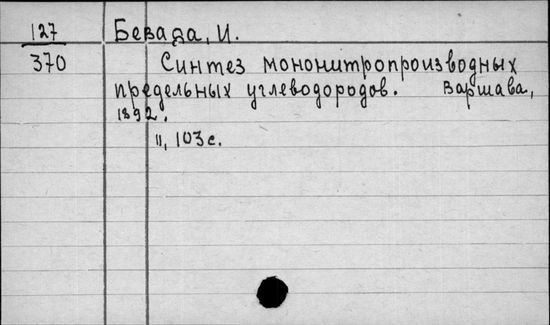 127 Бевада, И.
370 Синтез мононитропроизводных
предельных углеводородов. Варшава,
1892.
II, 103 с.